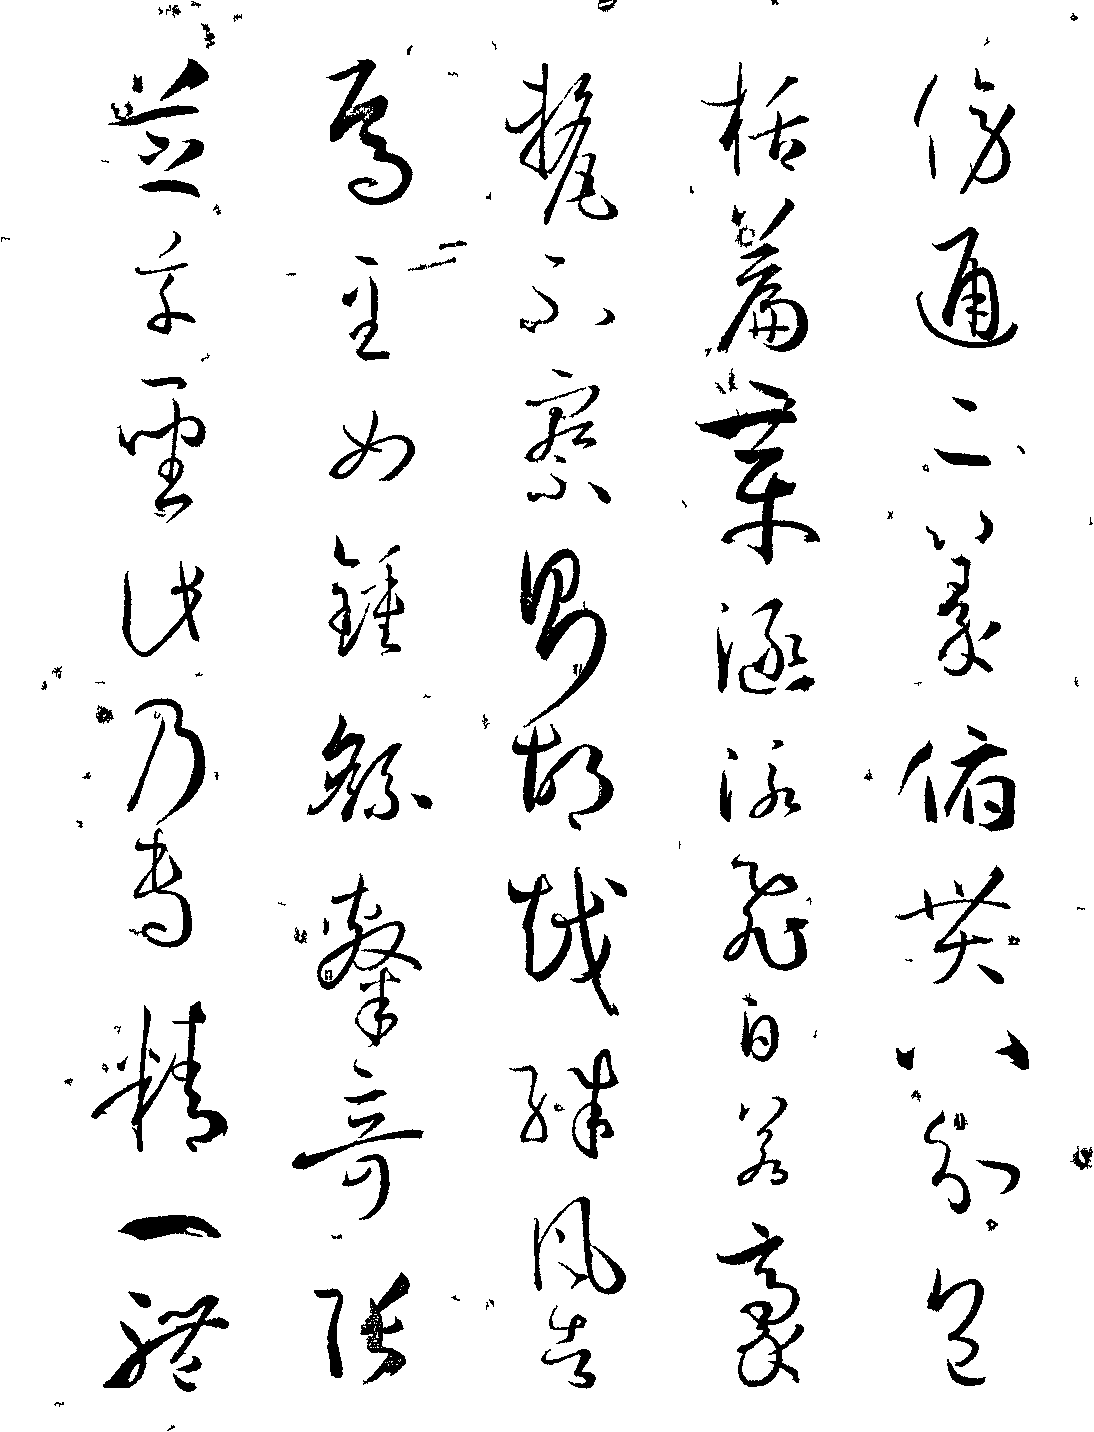 傍通二篆俯貫八分包
括篇章涵泳飛白若豪
氂不察則胡越殊風者
焉至如鍾繇隸奇張
芝草聖此乃專精一體